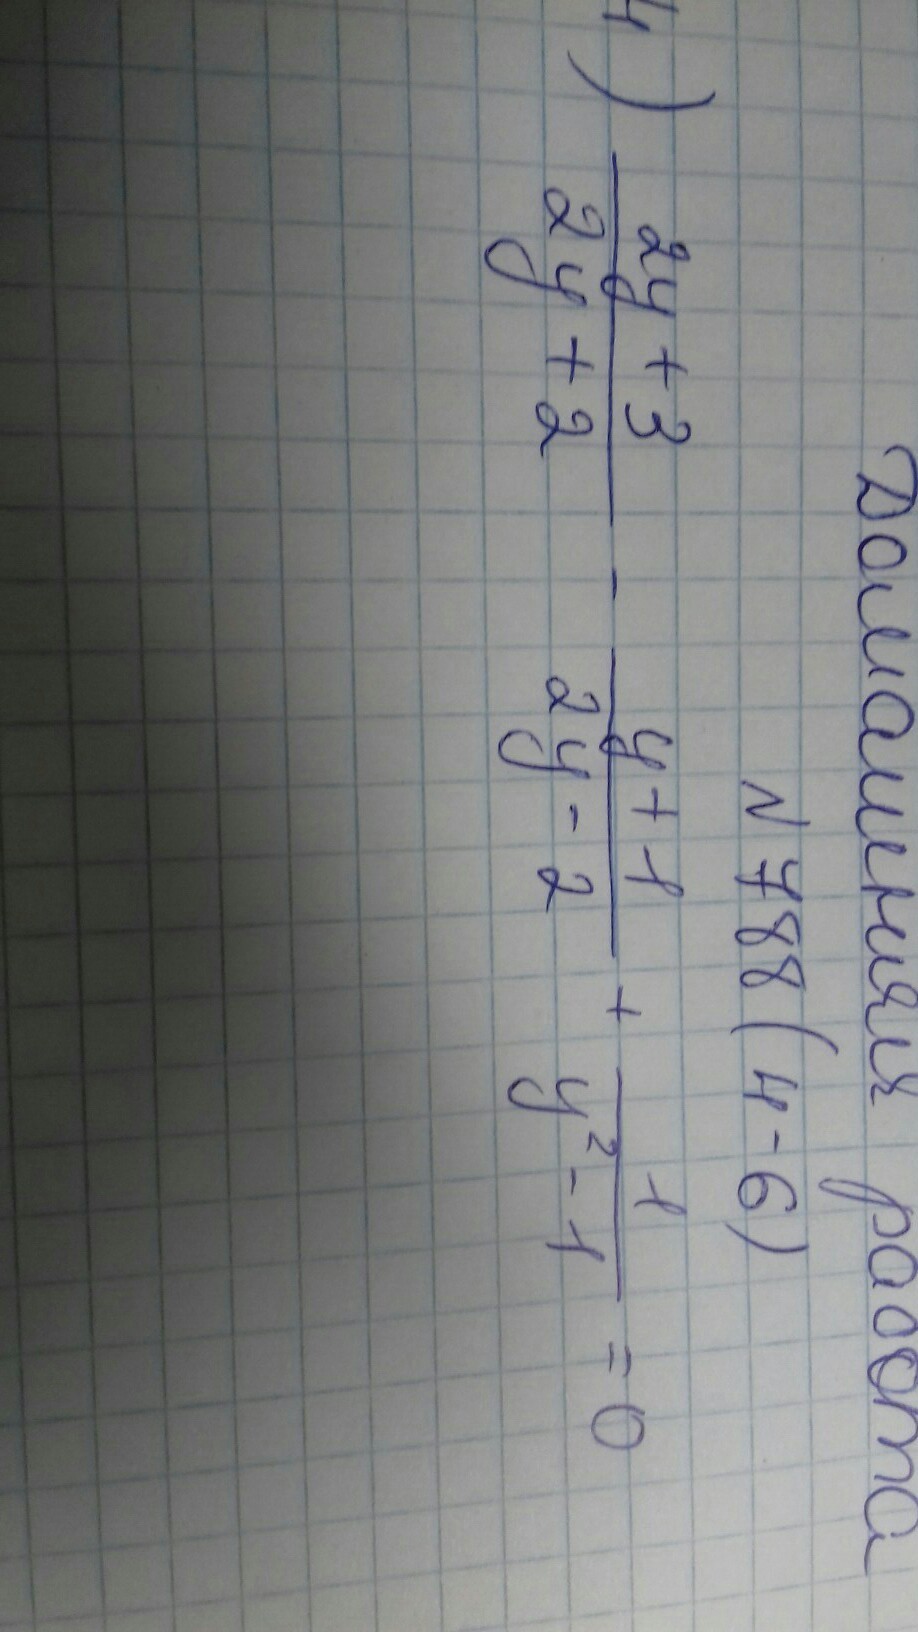 Домашняя работа
N 788 (4-6)
4) (2y + 3)/(2y + 2) - (y + 1)/(2y - 2) + 1/(y² - 1) = 0